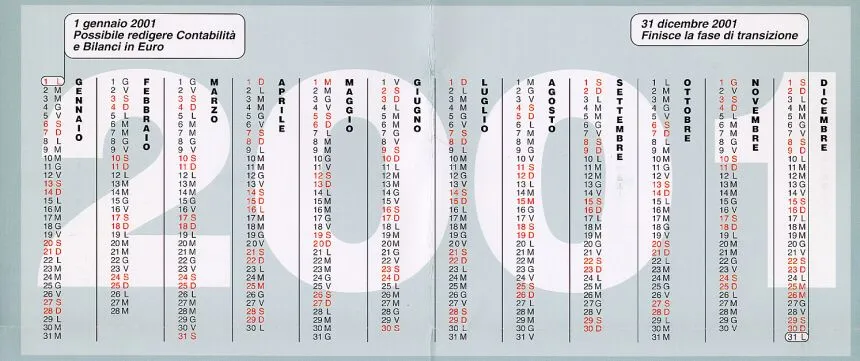 1 gennaio 2001
Possibile redigere Contabilità
e Bilanci in Euro
31 dicembre 2001
Finisce la fase di transizione
2001
GENNAIO FEBBRAIO MARZO APRILE MAGGIO GIUGNO LUGLIO AGOSTO SETTEMBRE OTTOBRE NOVEMBRE DICEMBRE
1 L 1 G 1 G 1 D 1 M 1 V 1 D 1 M 1 S 1 L 1 G 1 S
2 M 2 V 2 V 2 L 2 M 2 S 2 L 2 G 2 D 2 M 2 V 2 D
3 M 3 S 3 S 3 M 3 G 3 D 3 M 3 V 3 L 3 M 3 S 3 L
4 G 4 D 4 D 4 M 4 V 4 L 4 M 4 S 4 M 4 G 4 D 4 M
5 V 5 L 5 L 5 G 5 S 5 M 5 G 5 D 5 M 5 V 5 L 5 M
6 S 6 M 6 M 6 V 6 D 6 M 6 V 6 L 6 G 6 S 6 M 6 G
7 D 7 M 7 M 7 S 7 L 7 G 7 S 7 M 7 V 7 D 7 M 7 V
8 L 8 G 8 G 8 D 8 M 8 V 8 D 8 M 8 S 8 L 8 G 8 S
9 M 9 V 9 V 9 L 9 M 9 S 9 L 9 G 9 D 9 M 9 V 9 D
10 M 10 S 10 S 10 M 10 G 10 D 10 M 10 V 10 L 10 M 10 S 10 L
11 G 11 D 11 D 11 M 11 V 11 L 11 M 11 S 11 M 11 G 11 D 11 M
12 V 12 L 12 L 12 G 12 S 12 M 12 G 12 D 12 M 12 V 12 L 12 M
13 S 13 M 13 M 13 V 13 D 13 M 13 V 13 L 13 G 13 S 13 M 13 G
14 D 14 M 14 M 14 S 14 L 14 G 14 S 14 M 14 V 14 D 14 M 14 V
15 L 15 G 15 G 15 D 15 M 15 V 15 D 15 M 15 S 15 L 15 G 15 S
16 M 16 V 16 V 16 L 16 M 16 S 16 L 16 G 16 D 16 M 16 V 16 D
17 M 17 S 17 S 17 M 17 G 17 D 17 M 17 V 17 L 17 M 17 S 17 L
18 G 18 D 18 D 18 M 18 V 18 L 18 M 18 S 18 M 18 G 18 D 18 M
19 V 19 L 19 L 19 G 19 S 19 M 19 G 19 D 19 M 19 V 19 L 19 M
20 S 20 M 20 M 20 V 20 D 20 M 20 V 20 L 20 G 20 S 20 M 20 G
21 D 21 M 21 M 21 S 21 L 21 G 21 S 21 M 21 V 21 D 21 M 21 V
22 L 22 G 22 G 22 D 22 M 22 V 22 D 22 M 22 S 22 L 22 G 22 S
23 M 23 V 23 V 23 L 23 M 23 S 23 L 23 G 23 D 23 M 23 V 23 D
24 M 24 S 24 S 24 M 24 G 24 D 24 M 24 V 24 L 24 M 24 S 24 L
25 G 25 D 25 D 25 M 25 V 25 L 25 M 25 S 25 M 25 G 25 D 25 M
26 V 26 L 26 L 26 G 26 S 26 M 26 G 26 D 26 M 26 V 26 L 26 M
27 S 27 M 27 M 27 V 27 D 27 M 27 V 27 L 27 G 27 S 27 M 27 G
28 D 28 M 28 M 28 S 28 L 28 G 28 S 28 M 28 V 28 D 28 M 28 V
29 L 29 G 29 D 29 M 29 V 29 D 29 M 29 S 29 L 29 G 29 S
30 M 30 V 30 L 30 M 30 S 30 L 30 G 30 D 30 M 30 V 30 D
31 M 31 S 31 G 31 M 31 V 31 M 31 L